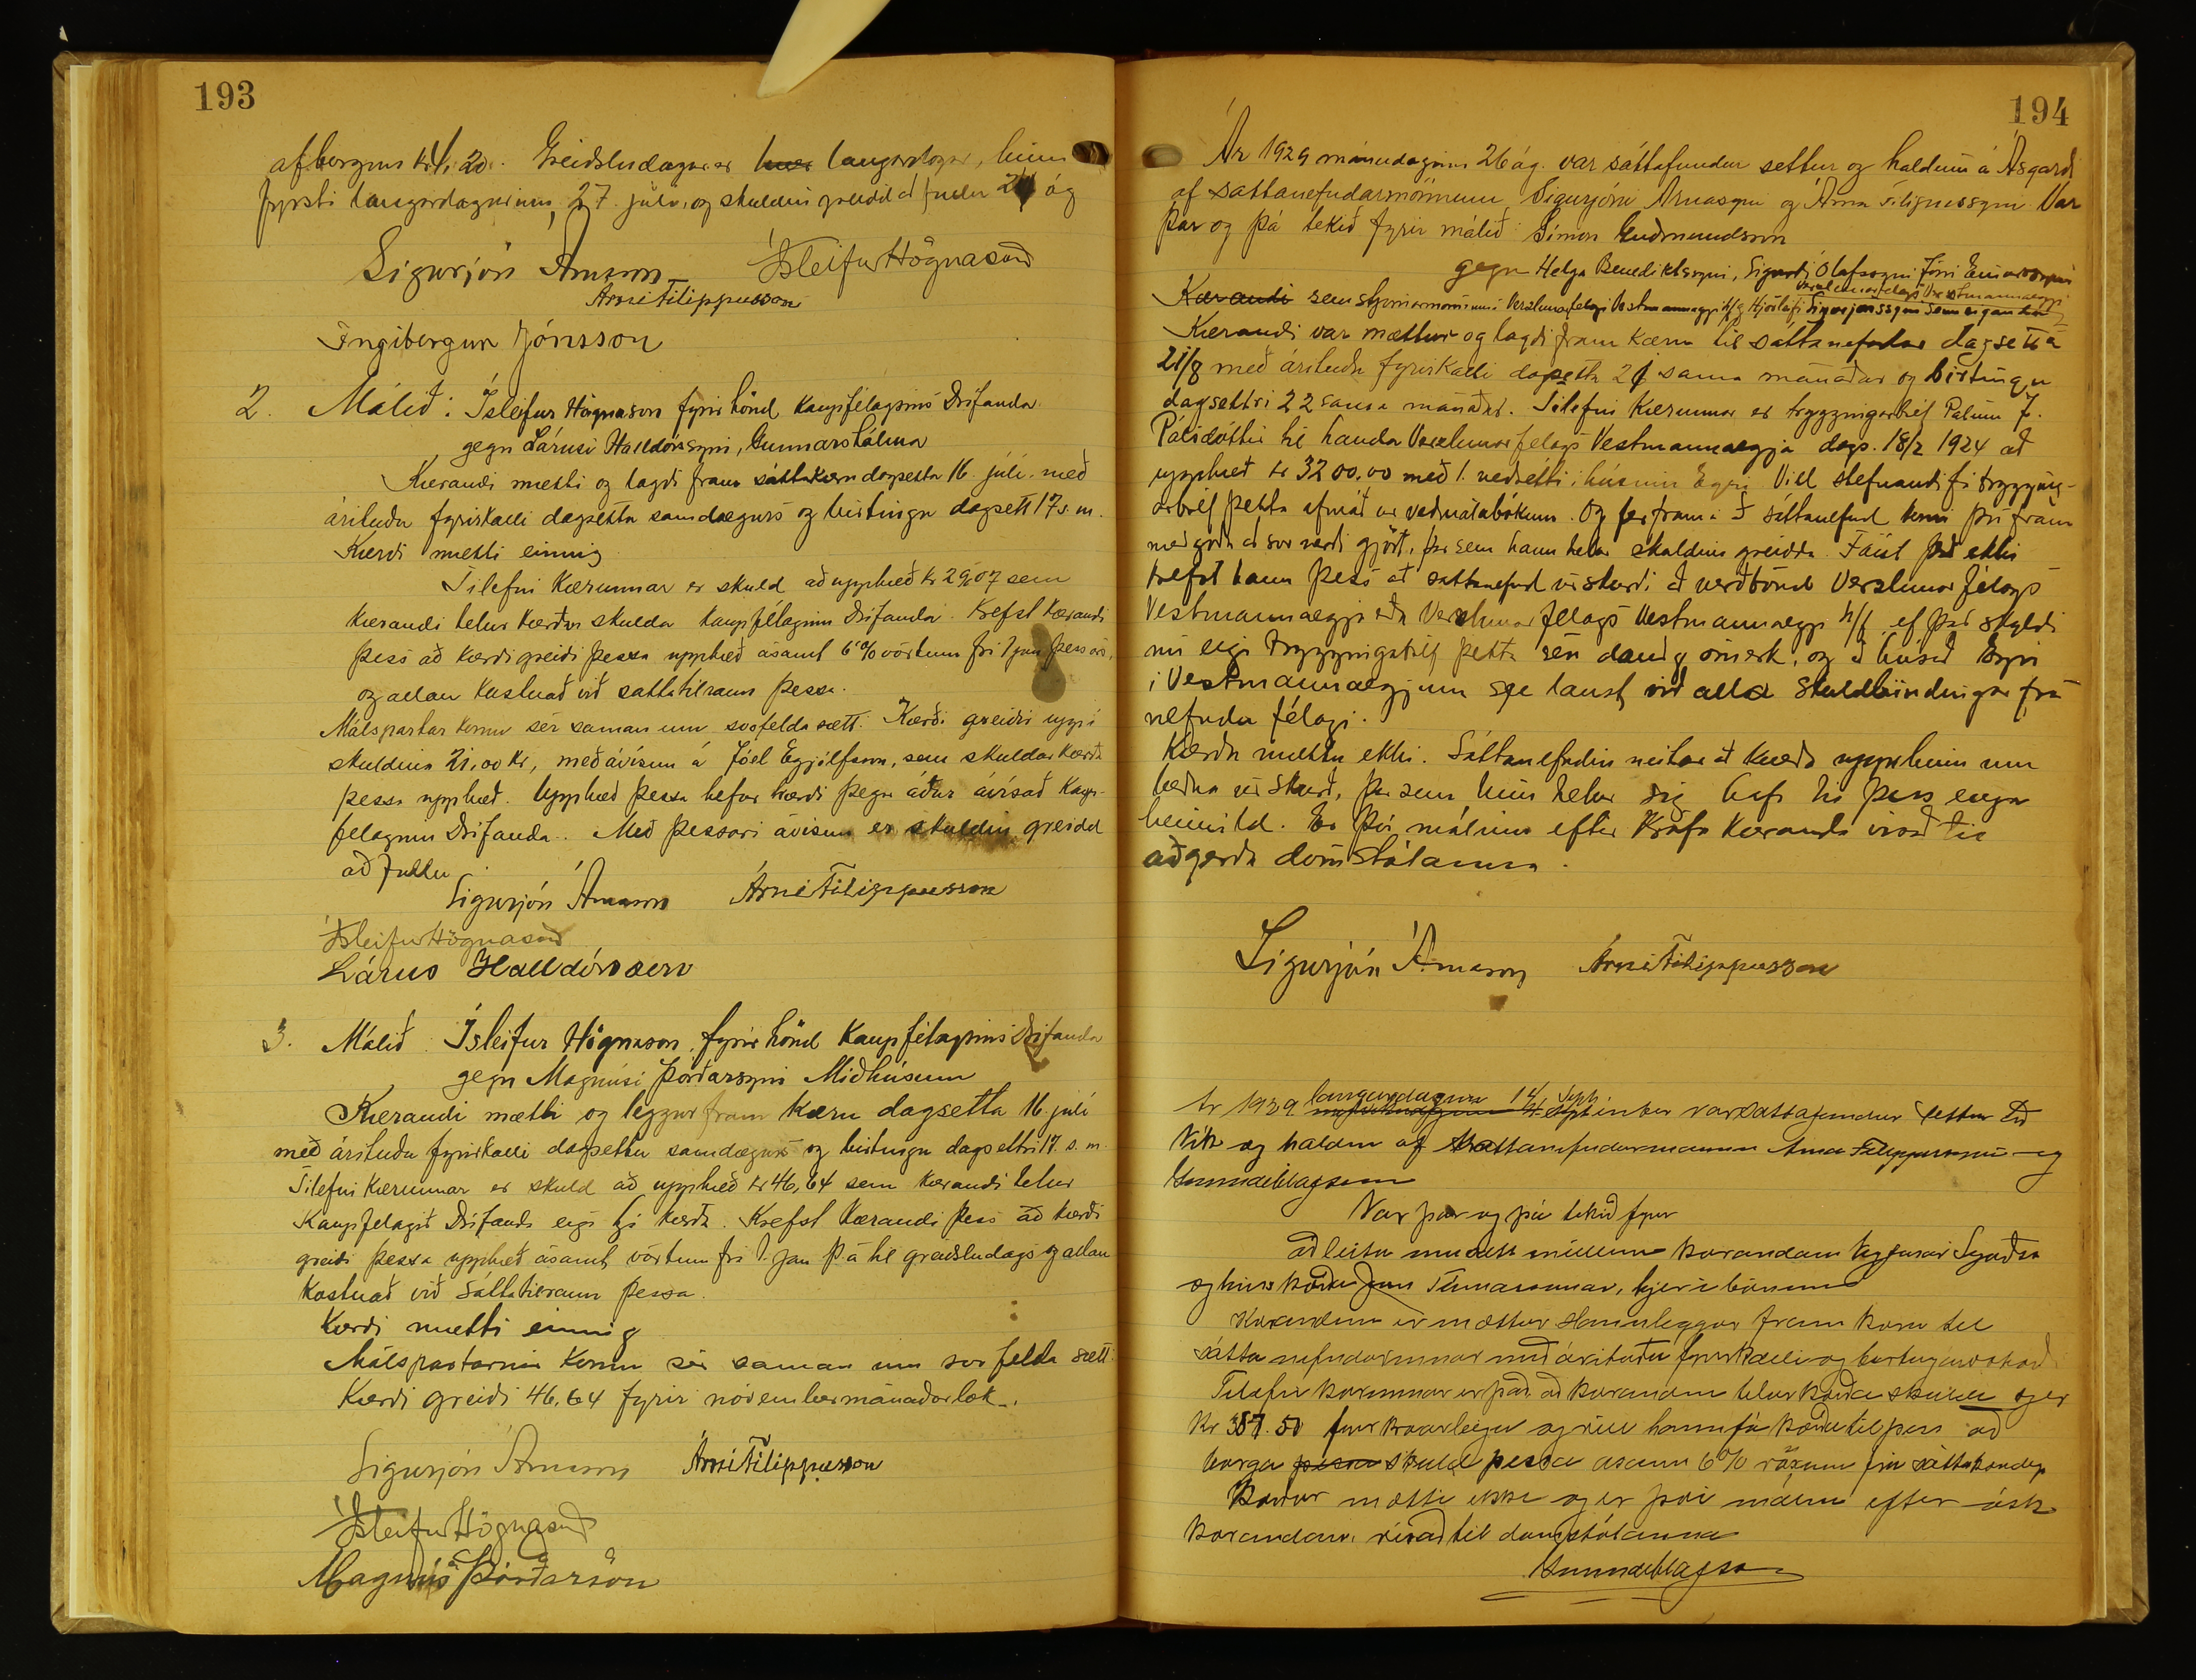 193
afborgun kr. 20. Greiðsludagar er hver laugardagar, hinn
fyrsti laugardagurinn, 27. júlí, og skuldin greidd að fullu 24 ág
Sigurjón Árnason Ísleifur Högnason
Árni Filippusson
Ingibergur Jónsson
2. Málið: Ísleifur Högnason fyrir hönd Kaupfélagsins Drífanda
gegn Lárusi Halldórssyni, Gunnarshólma
Kærandi mætti og lagði fram sáttakæru dagsetta 16. júlí. með
árituðu fyrirkalli dagsettu samdægurs og birtingu dagsett 17 s.m.
Kærði mætti einnig
Tilefni kærunnar er skuld að upphæð kr 29,07 sem
kærandi telur kærðan skulda kaupfélaginu Drífanda. Krefst kærandi
þess að kærði greiði þessa upphæð ásamt 6% vöxtum frá 1 jan þessa árs,
og allan kostnað við sáttatilraun þessa.
Málspartar komu sér saman um svofelda sætt: Kærði greiðir uppí
skuldina 21,00 kr, með ávísun á Jóel Eyjólfsson, sem skuldar kærða
þessa upphæð. Upphæð þessa hefur kærði þegar áður ávísað Kaup-
félaginu Drífanda. Með þessari ávísun er skuldin greidd
að fullu
Sigurjón Árnason Árni Filippusson
Ísleifur Högnason
Lárus Halldórsson
3. Málið Ísleifur Högnason, fyrir hönd Kaupfélagsins Drífanda
gegn Magnúsi Þórðarsyni Miðhúsum
Kærandi mætti og leggur fram kæru dagsetta 16 júlí
með árituðu fyrirkalli dagsettu samdægurs og birtingu dagsettri 17. s.m.
Tilefni kærunnar er skuld að upphæð kr 46,64 sem kærandi telur
Kaupfélagið Drífanda eiga hjá kærða. Krefst kærandi þess að kærði
greiði þessa upphæð ásamt vöxtum frá 1. jan þ.á til greiðsludags og allan
kostnað við sáttatilraun þessa.
Kærði mætti einnig
Málspartarnir komu sér saman um svofelda sætt:
Kærði greiði 46,64 fyrir nóvembermánaðarlok.
Sigurjón Árnason Árni Filippusson
Ísleifur Högnason
Magnús Þórðarson
194
Ár 1929 mánudaginn 26 ág. var sáttafundur settur og haldinn á Ásgarði
af sáttanefndarmönnum Sigurjóni Árnasyni og Árna Filippussyni. Var
þar og þá tekið fyrir málið: Símon Guðmundsson
gegn Helga Benediktssyni, Sigurði Ólafssyni Jóni Einarssyni
Verslunarfélagi Vestmannaeyja
Kærandi sem stjórnarmönnum í Verzlunarfélagi Vestmannaeyja h/f og Hjörleifi Sigurjónssyni sem eiganda
Kærandi var mættur og lagði fram kæru til sáttanefndar dagsetta
21/8 með árituðu fyrirkalli dagsettu 21 sama mánaðar og birtingu
dagsettri 22 sama mánaðar. Tilefni kærunnar er tryggingarbréf Pálínu J.
Pálsdóttur til handa Verzlunarfélags Vestmannaeyja dags. 18/2 1924 að
upphæð kr 3200,00 með 1. veðrétti í húsinu Eyri Vill stefnandi fá trygging-
arbréf þetta afmáð úr veðmálabókum. Og fer fram á að sáttanefnd komi því fram
með góðu að svo verði gjört, þar sem hann telur skuldina greidda. Fáist það ekki
krefst hann þess að sáttanefnd úrskurði að veðbönd Verzlunarfélags
Vestmannaeyja eða Verzlunarfélags Vestmannaeyja h/f, ef það skyldi
nú eiga tryggingabréf þetta séu dauð og ómerk, og að húsið Eyri
í Vestmannaeyjum sje laust við allar skuldbindingar frá
nefndu félagi.
Kærðu mættu ekki. Sáttanefndin neitar að kveða upp hinn um
beðna úrskurð, þar sem hún telur sig hafa til þess enga
heimild. Er því málinu eftir kröfu kæranda vísað til
aðgerða dómstólanna.
Sigurjón Árnason Árni Filippusson
Ár 1929 laugardaginn 14 Sept. var sáttafundur settur að
Vík og haldinn af sáttanefndarmönnum Árna Filippussyni og
Var þar og þá tekið fyrir
að leita um sátt millum kærandans
og hins kærða Jóns Finnssonar, hjer í bænum
Kærandinn er mættur Hann leggur fram kæru til
sáttanefndarinnar með árituðu fyrirkalli og birtingarvottorði
Tilefni kærunnar er það að kærandinn telur kærða skulda sjer
Kr 387.50 fyrir og vill hann fá kærða til þess að
borga þessa skuld þessa ásamt 6% vöxum frá sáttakærudegi
Kærður mætti ekki og er því málinu eftir ósk
kærandans vísað til dómstólanna